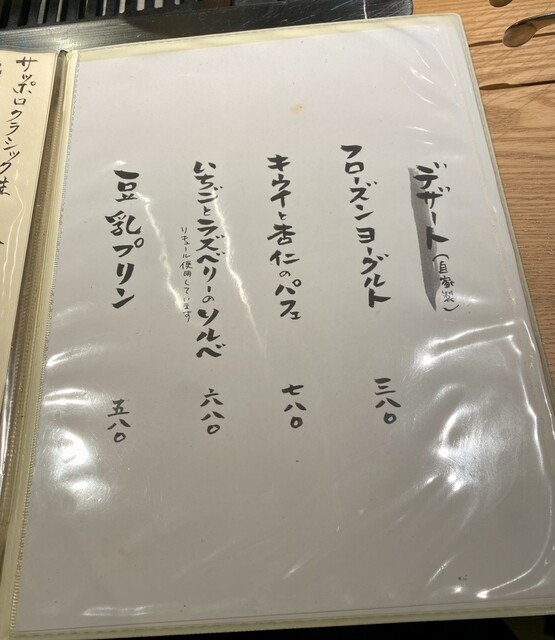 デザート（自家製）
フローズンヨーグルト 三八〇
キウイと杏仁のパフェ 七八〇
いちごとラズベリーのソルベ 六八〇
リキュール使用しています
豆乳プリン 五八〇
サッポロクラシック